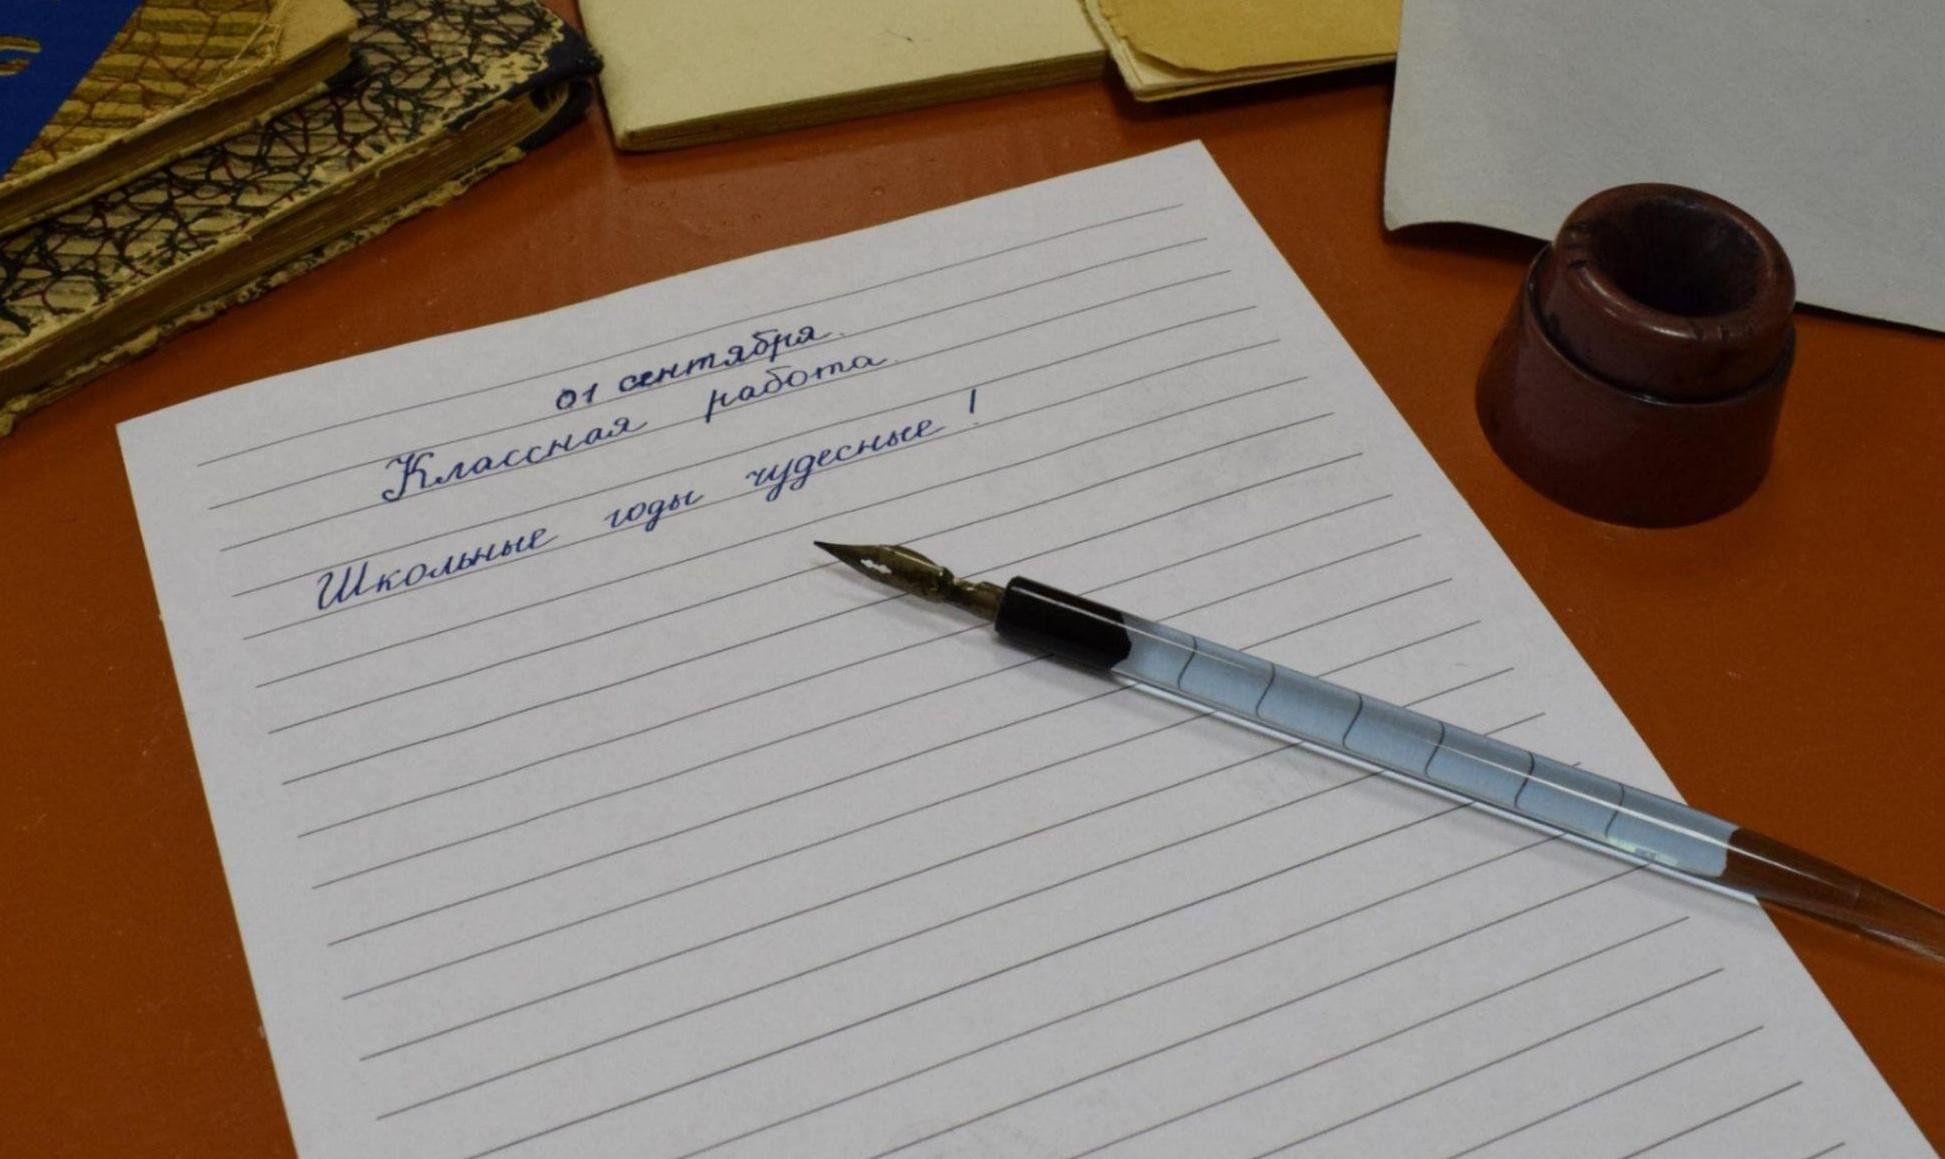 01 сентября.
Классная работа.
Школьные годы чудесные!